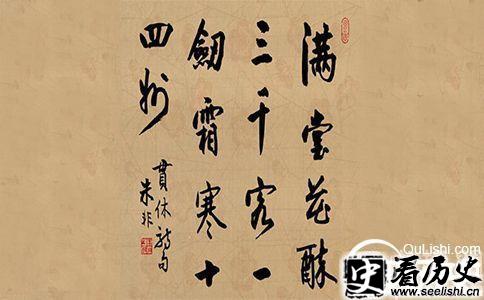 满堂花醉
三千客一
劍霜寒十
四州
貫休詩句
朱非
QuLishi.com
史 看历史
www.seelishi.cn